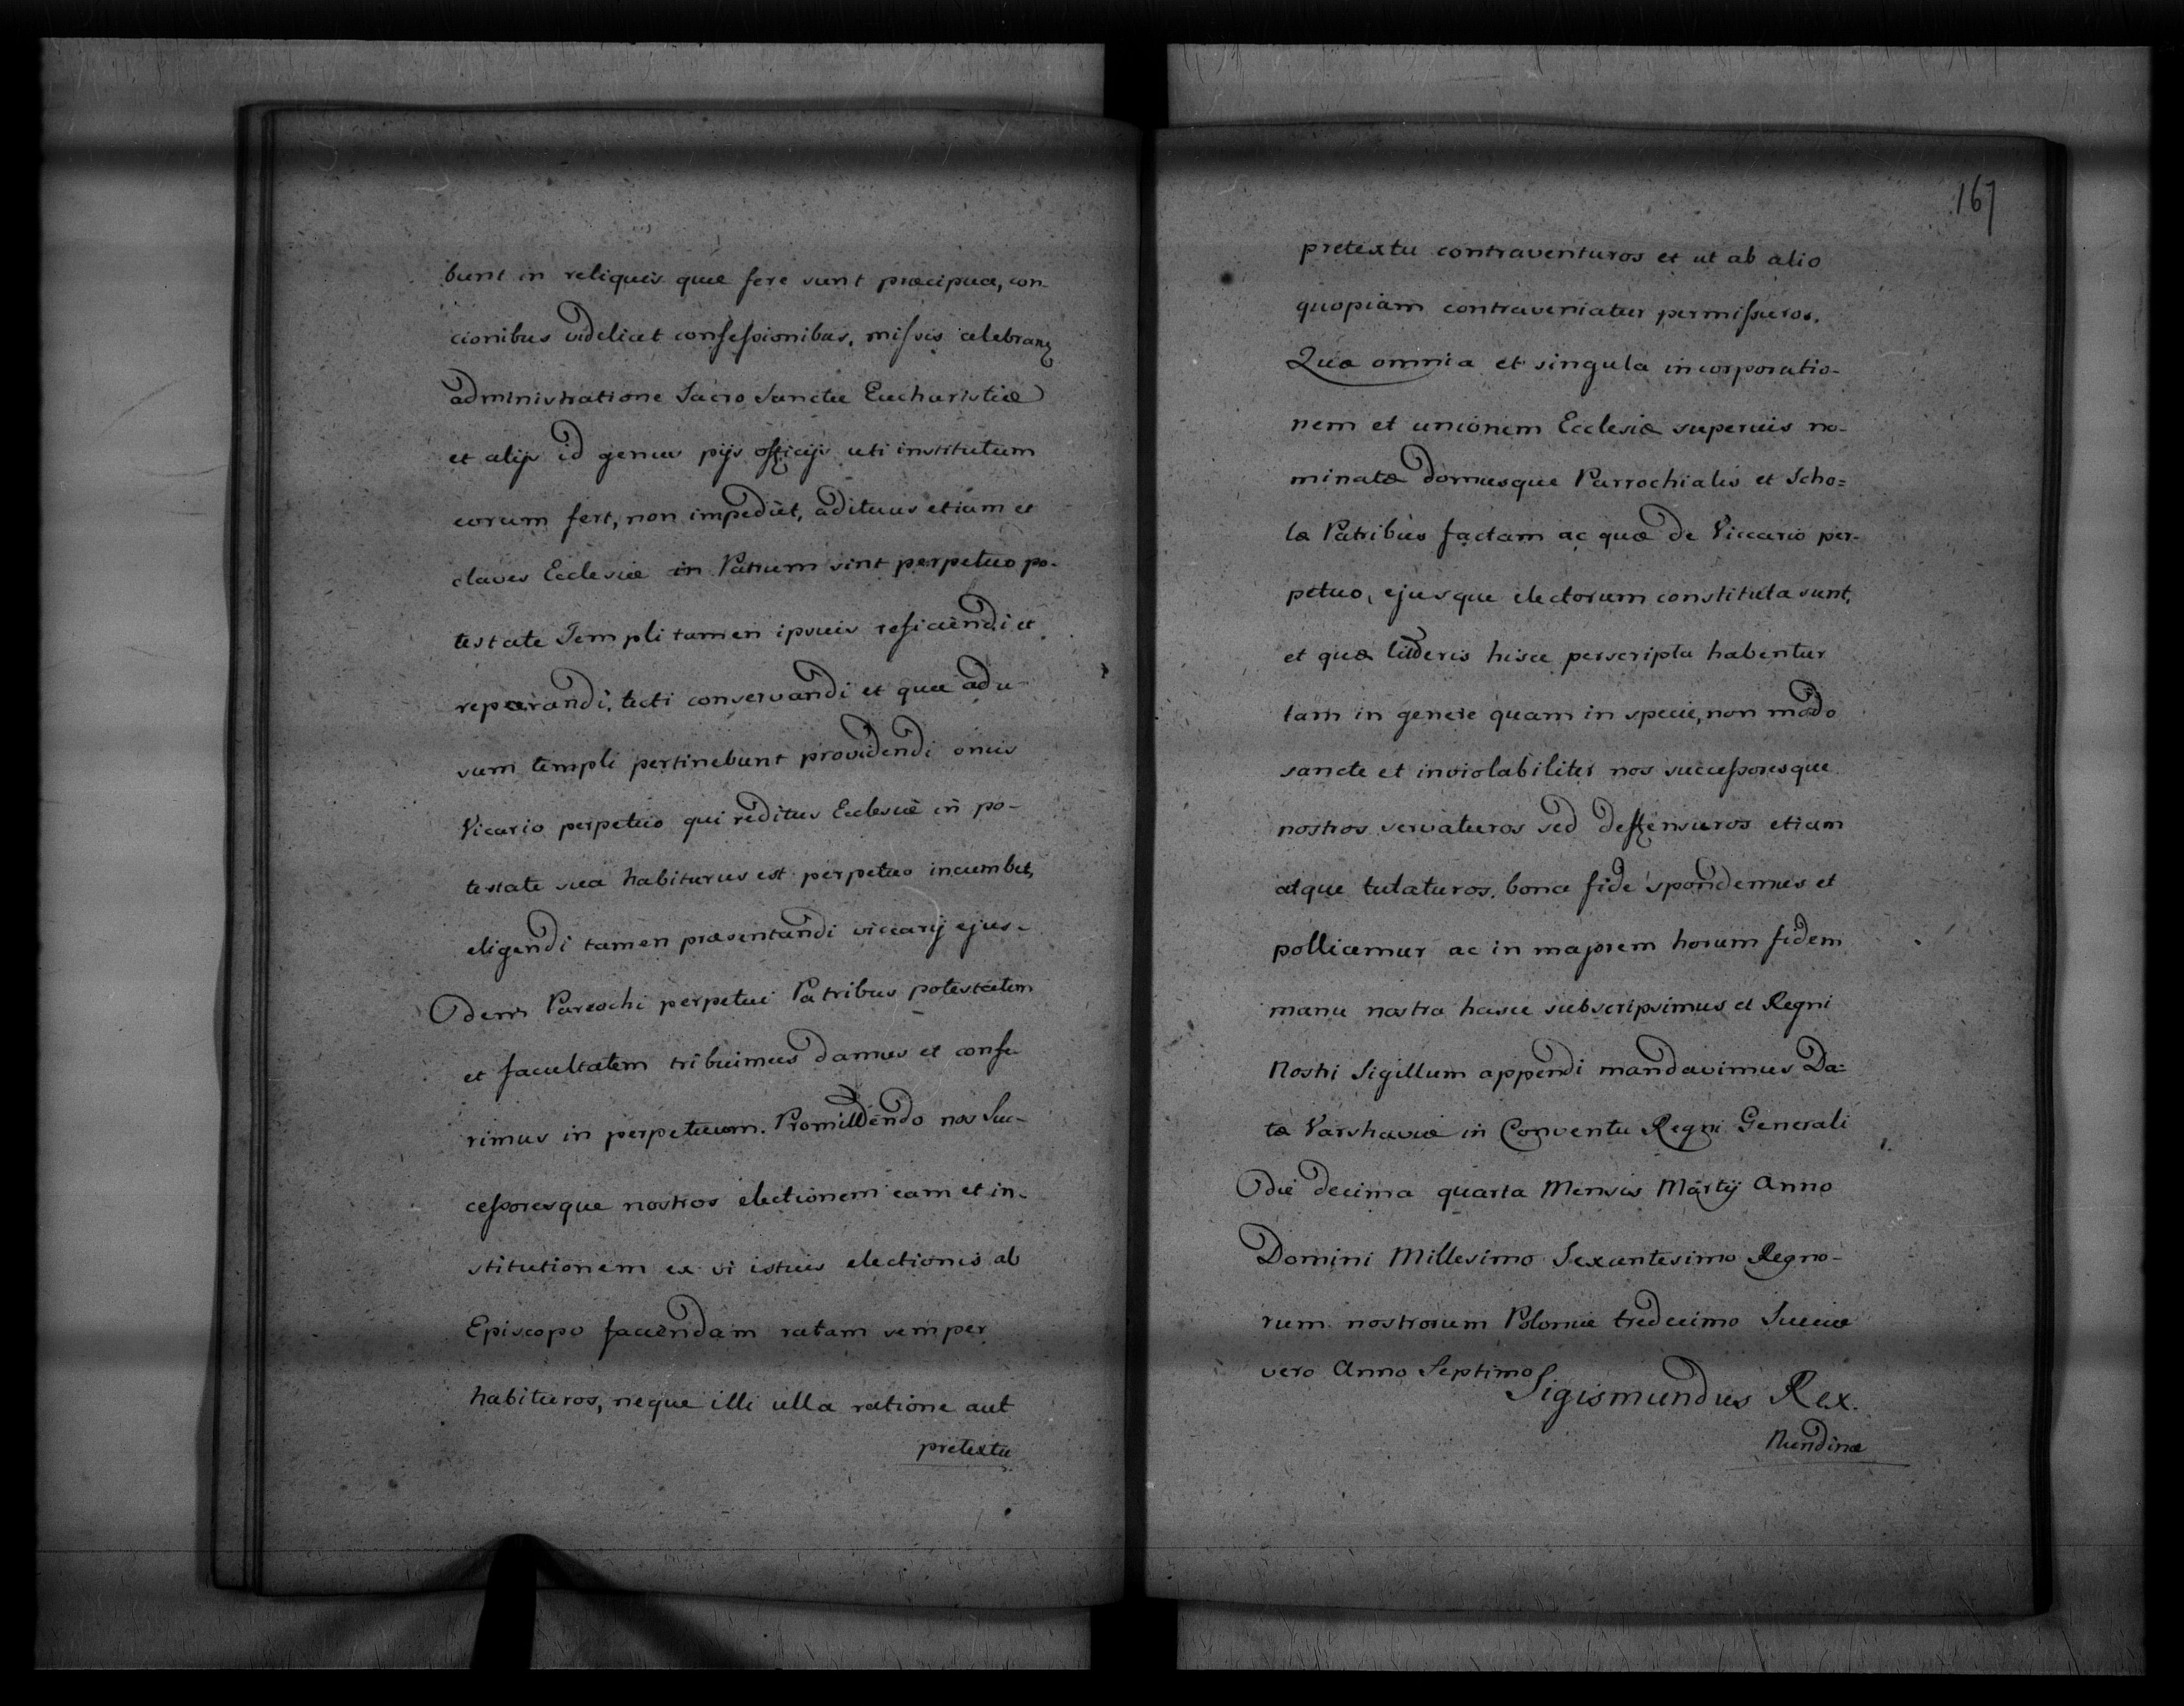 bunt in reliquis quæ fere sunt præcipua, con-
cionibus videlicet confessionibus, missis celebrandis
administratione Sacro Sanctæ Eucharistiæ
et alijs id genus pijs officijs uti institutum
eorum fert, non impediet, adituus etiam et
claves Ecclesiæ in Patrum sint perpetuo po-
testate Templi tamen ipsius reficiendi et
reparandi, tecti conservandi et quæ ad u-
sum templi pertinebunt providendi onus
Vicario perpetuo qui reditus Ecclesiæ in po-
testate sua habiturus est perpetuo incumbet,
eligendi tamen præsentandi viccarij ejus-
dem Parrochi perpetui Patribus potestatem
et facultatem tribuimus damus et confe-
rimus in perpetuum. Promittendo nos Suc-
cessoresque nostros electionem eam et in-
stitutionem ex vi istius electionis ab
Episcopo faciendam ratam semper
habituros, neque illi ulla ratione aut
pretextu
167
pretextu contraventuros et ut ab alio
quopiam contraveniatur permissuros.
Quæ omnia et singula incorporatio-
nem et unionem Ecclesiæ superius no-
minatæ domusque Parrochialis et Scho=
læ Patribus factam ac quæ de Viccario per-
petuo, ejusque electorum constituta sunt,
et quæ litteris hisce perscripta habentur
tam in genere quam in specie, non modo
sancte et inviolabiliter nos successoresque
nostros servaturos sed deffensuros etiam
atque tutaturos. bona fide spondemus et
pollicemur ac in majorem horum fidem
manu nostra hasce subscripsimus et Regni
Nostri Sigillum appendi mandavimus Da=
tæ Varshaviæ in Conventu Regni Generali
die decima quarta Mensis Martij Anno
Domini Millesimo Sexcentesimo Regno-
rum nostrorum Poloniæ tredecimo Sueciæ
vero Anno Septimo
Sigismundus Rex.
Nundinæ